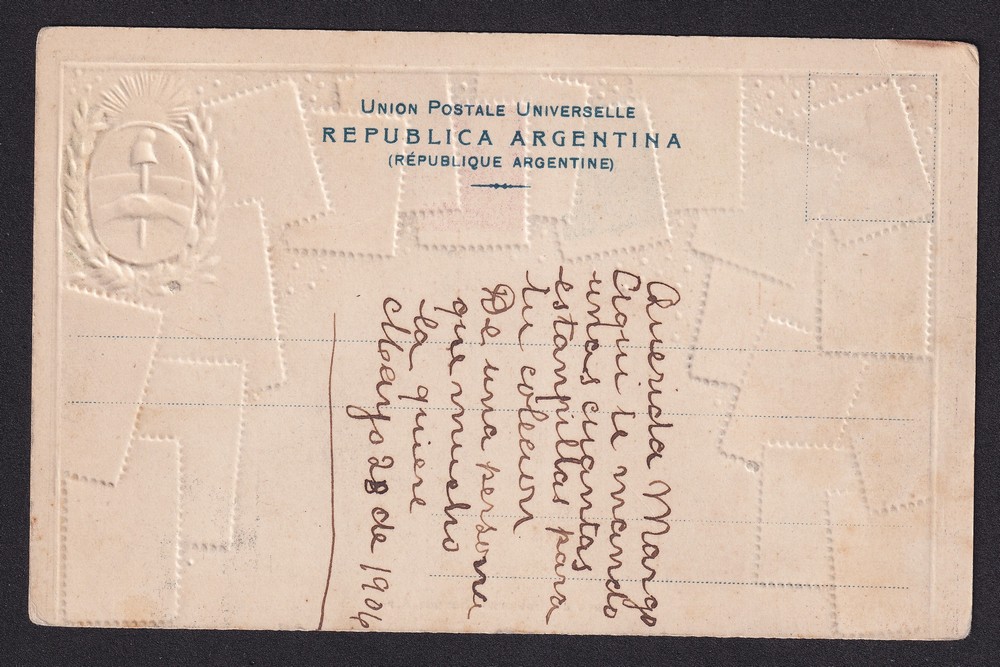 UNION POSTALE UNIVERSELLE
REPUBLICA ARGENTINA
(RÉPUBLIQUE ARGENTINE)
Querida Margo
Aqui te mando
unas cuantas
estanpillas para
tu colecion
De una persona
que mucho
la quiere
Mayo 28 de 1904